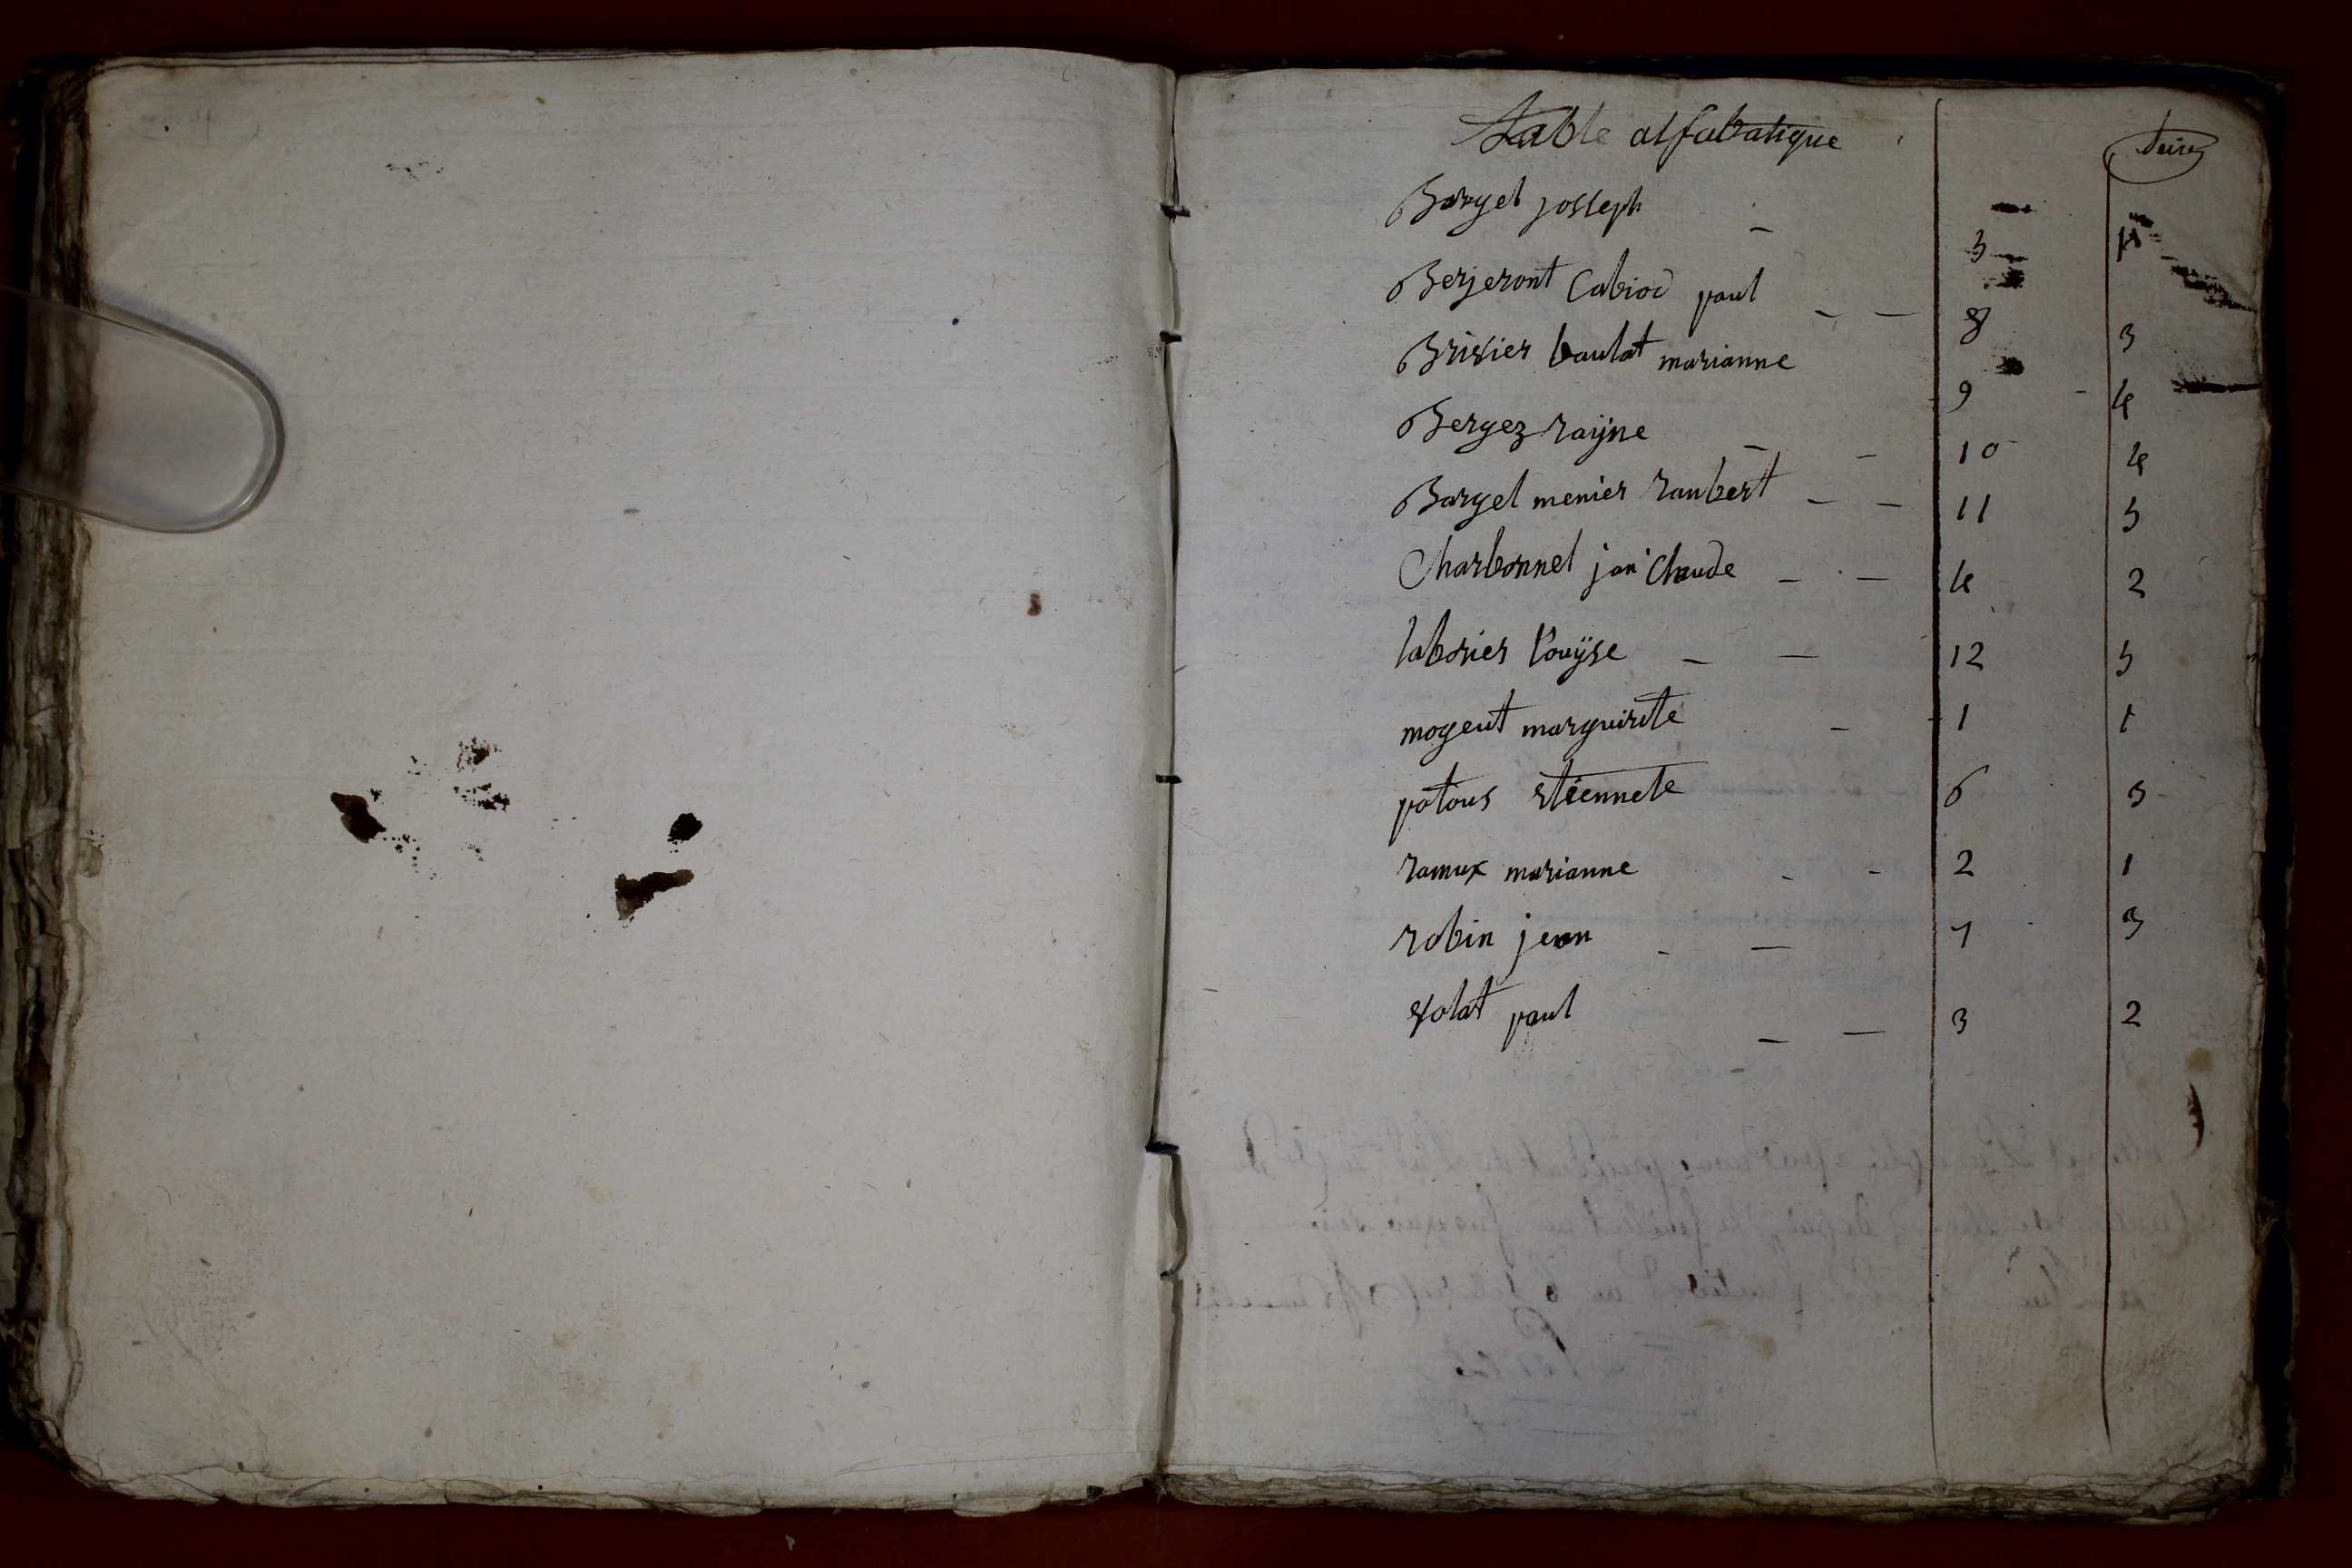 table alfabatique
Bargel josseph 5
Berjeront Cabiod paul 8 3
Brisier baulat marianne 9 4
Bergez rayne 10 4
Bargel menier raubert 11 5
Charbonnel jan Claude 4 2
laborier Louÿse 12 5
mogeut marguirite 1 1
patous etiennete 6 3
ramux marianne 2 1
robin jean 7 3
volat paul 3 2